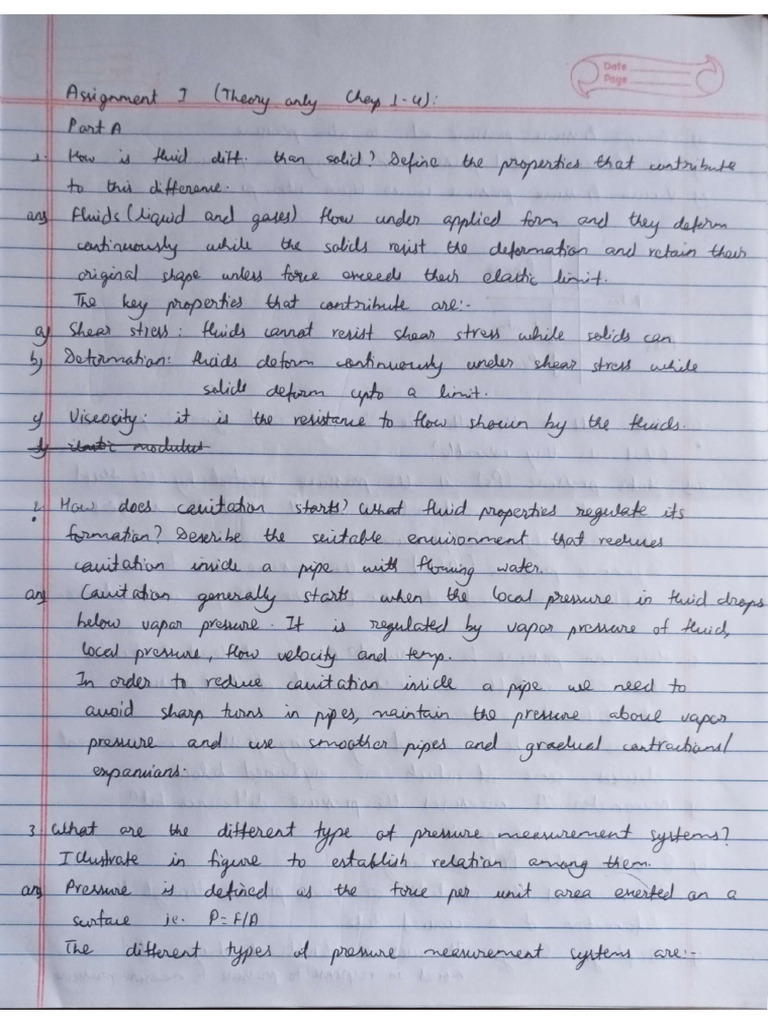 Date
Page
Assignment I (Theory only Chap 1-4):
Part A
1. How is fluid diff. than solid? Define the properties that contribute
to this difference.
ans) Fluids (liquid and gases) flow under applied form and they deform
continuously while the solids resist the deformation and retain their
original shape unless force exceeds their elastic limit.
The key properties that contribute are:-
a) Shear stress: fluids cannot resist shear stress while solids can
b) Deformation: fluids deform continuously under shear stress while
solids deform upto a limit.
c) Viscocity: it is the resistance to flow shown by the fluids.
d) elastic modulus
2. How does cavitation starts? What fluid properties regulate its
formation? Describe the suitable environment that reduces
cavitation inside a pipe with flowing water.
ans) Cavitation generally starts when the local pressure in fluid drops
below vapor pressure. It is regulated by vapor pressure of fluid,
local pressure, flow velocity and temp.
In order to reduce cavitation inside a pipe we need to
avoid sharp turns in pipes, maintain the pressure above vapor
pressure and use smoother pipes and gradual contractions/
expansians.
3. What are the different type of pressure measurement systems?
Illustrate in figure to establish relation among them.
ans) Pressure is defined as the force per unit area exerted on a
surface ie. P=F/A
The different types of pressure measurement systems are:-